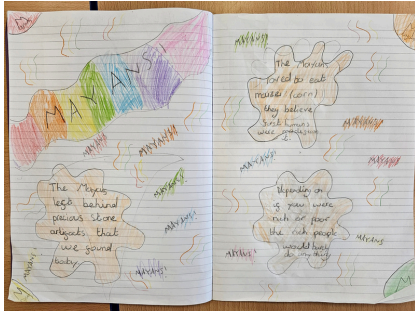 MAYANS!
MAYANS!
MAYANS!
MAYANS!
MAYANS!
The Mayans
left behind
precious stone
artifacts that
we found
today.
MAYANS!
MAYANS!
MAYANS!
The Mayans
loved to eat
maize (corn)
they believe
first humans
were made from
it.
MAYANS!
MAYANS!
MAYANS!
Depending on
if you were
rich or poor
the rich people
would
do anything
MAYANS!
MAYANS!